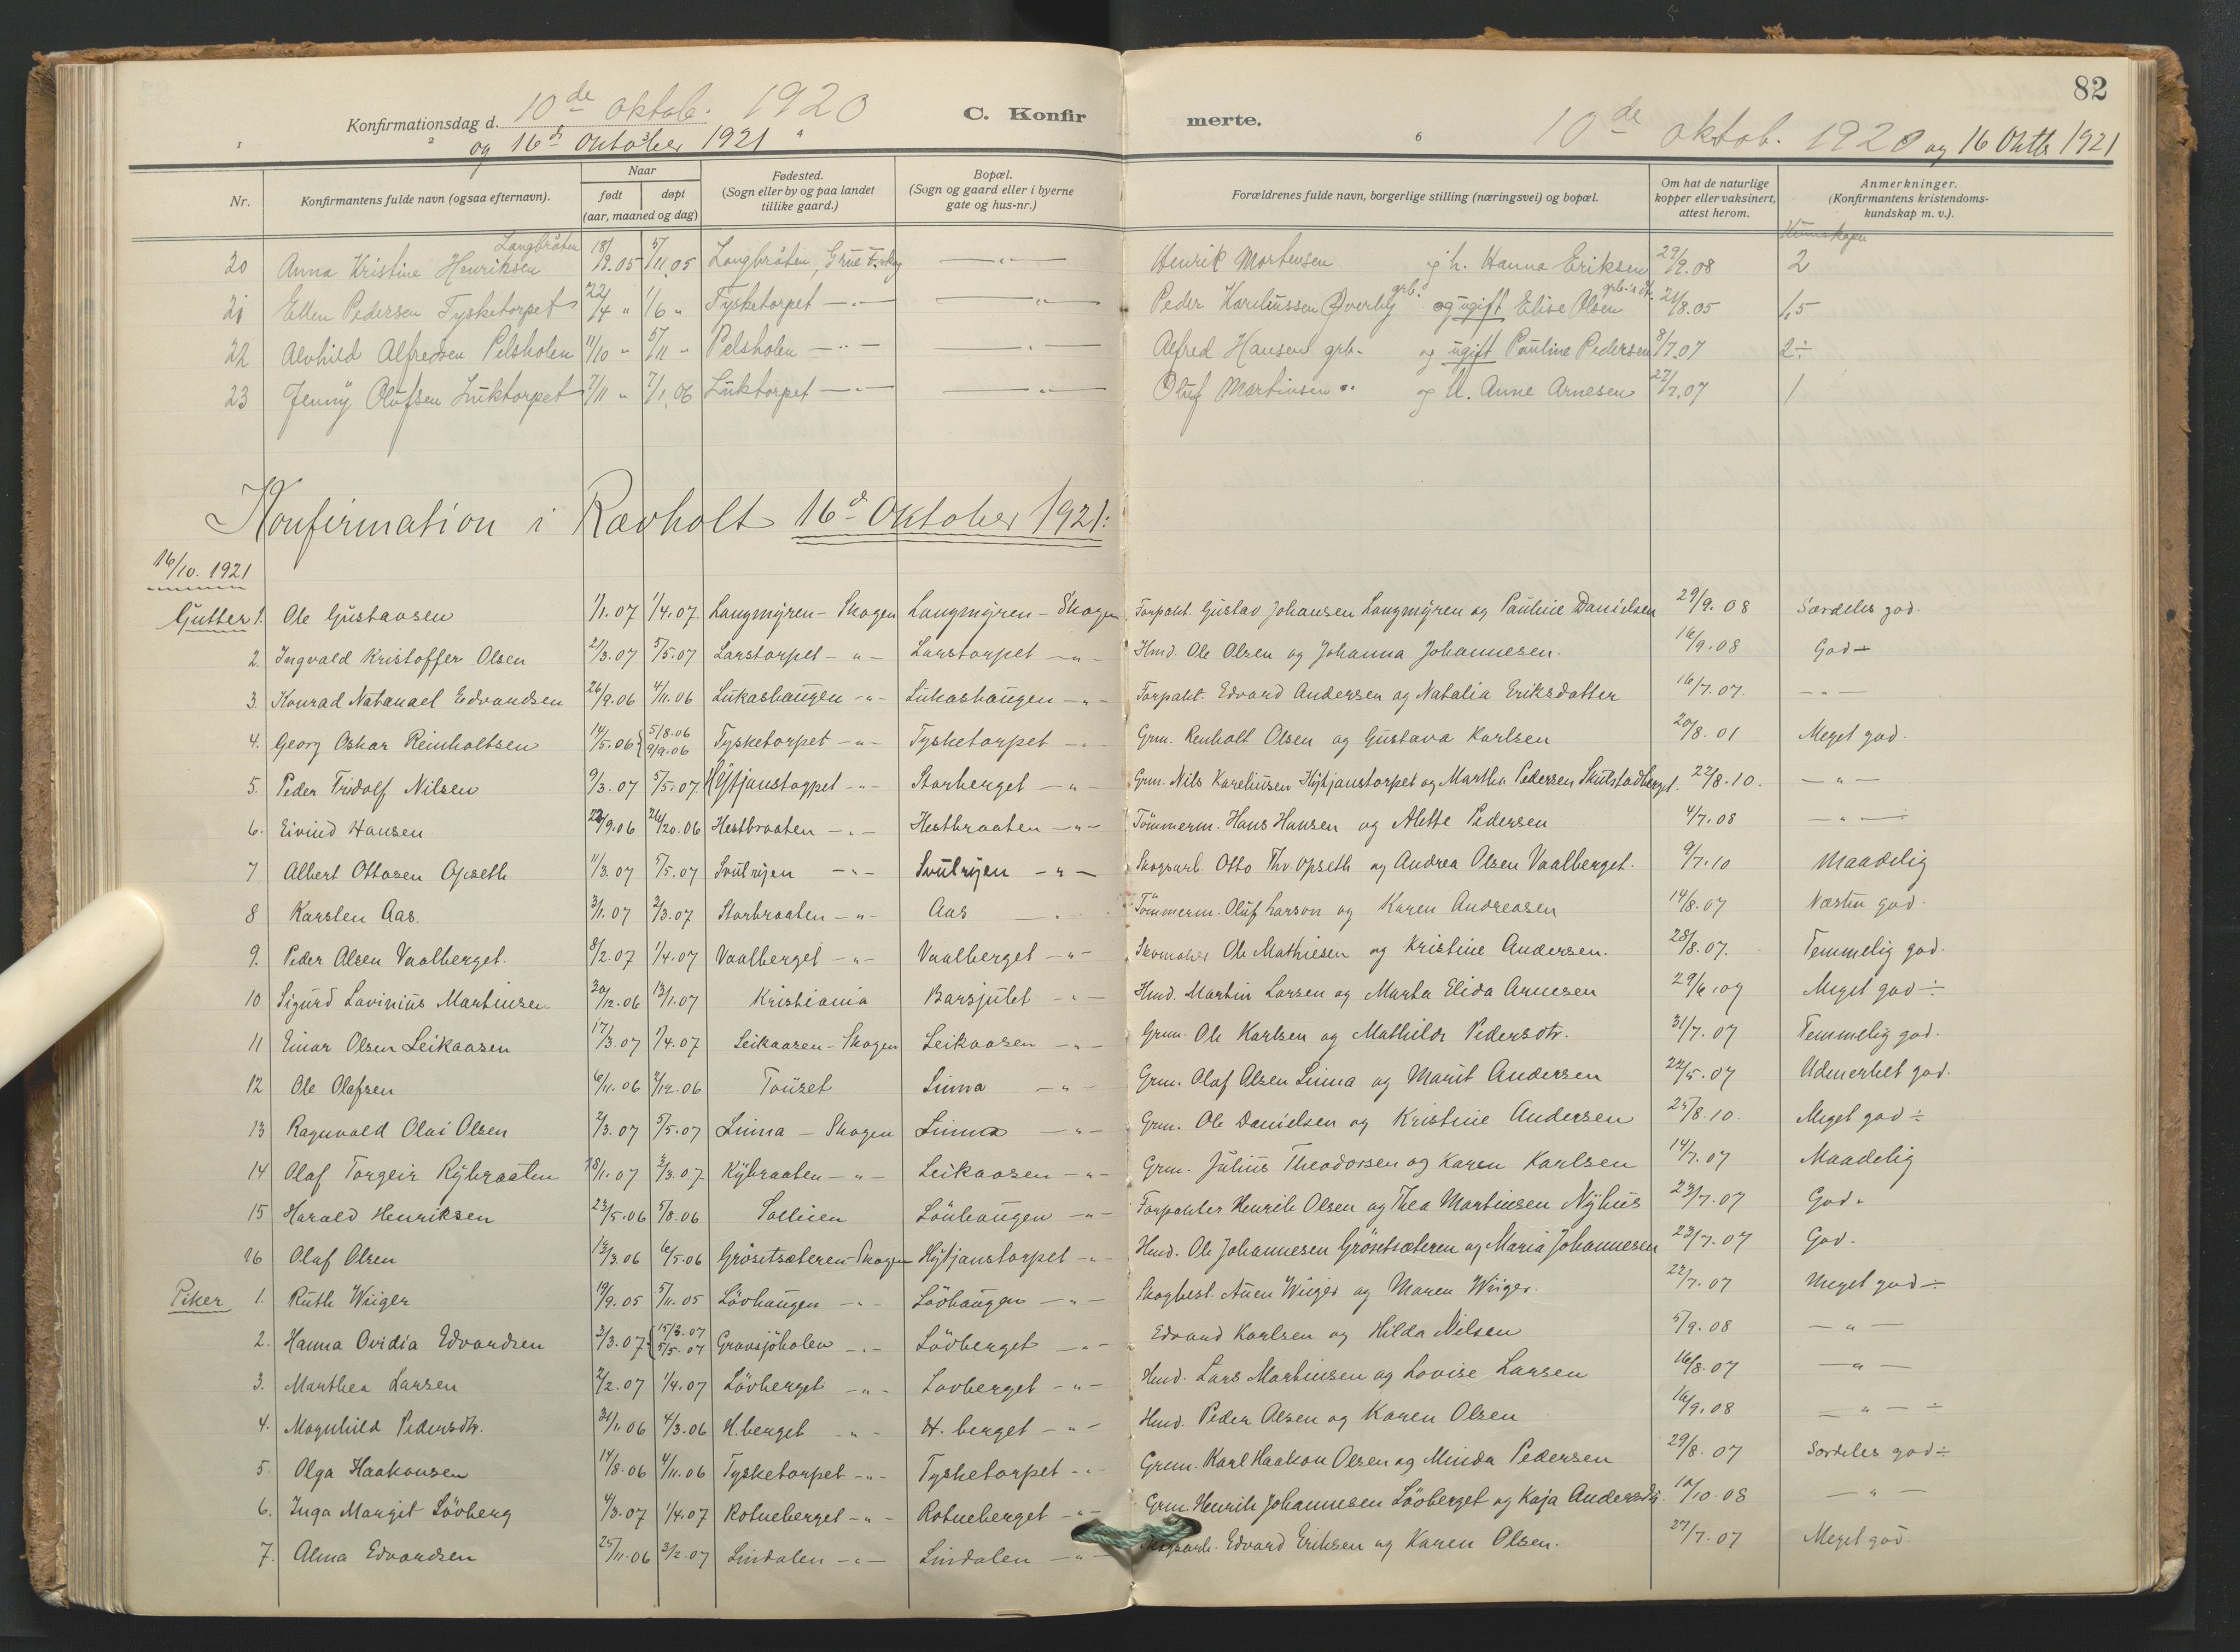 82
Konfirmationsdag d. 10de oktob. 1920 C. Konfirmerte. 10de oktob. 1920 og 16 Oktbr 1921
og 16d Oktober 1921
1 2 3 4 6
Nr. Konfirmantens fulde navn (ogsaa efternavn). Naar født døpt (aar, maaned og dag) Fødested. (Sogn eller by og paa landet tillike gaard.) Bopæl. (Sogn og gaard eller i byerne gate og hus-nr.) Forældrenes fulde navn, borgerlige stilling (næringsvei) og bopæl. Om hat de naturlige kopper eller vaksinert, attest herom. Anmerkninger. (Konfirmantens kristendoms-kundskap m. v.).
Kunskapen
20 Anna Kristine Henriksen Langbråten 18/9.05 5/11.05 Langbråten, Grue Finskog —„— Henrik Mortensen og h. Hanna Eriksen 29/9.08 2
21 Ellen Pedersen Tysketorpet 22/4 „ 1/6 „ Tysketorpet —„— —„— Peder Kareliussen Øverby grb. og ugift Elise Olsen 21/8.05 1,5
22 Alvhild Alfredsen Pelsholen 11/10 „ 5/11 „ Pelsholen —„— —„— Alfred Hansen grb. og ugift Pauline Pedersen 8/7.07 2÷
23 Jenny Olufsen Luktorpet 7/11 „ 7/1.06 Luktorpet —„— —„— Oluf Martinsen „ og h. Anne Arnesen 27/7.07 1
Konfirmation i Rævholt 16d Oktober 1921:
16/10. 1921
Gutter 1. Ole Gustavsen 1/1.07 1/4.07 Langmyren - Skogen Langmyren - Skogen Forpakt. Gustav Johansen Langmyren og Pauline Danielsen 29/9.08 Særdeles god.
2. Ingvald Kristoffer Olsen 21/3.07 5/5.07 Larstorpet - „ - Larstorpet - „ - Hmd. Ole Olsen og Johanna Johannesen. 16/9.08 God ÷
3. Konrad Natanael Edvardsen 26/9.06 4/11.06 Lukashaugen - „ - Lukashaugen - „ - Forpakt. Edvard Andersen og Natalia Eriksdatter 16/7.07. — „ —
4. Georg Oskar Reinholtsen 14/5.06 { 5/8.06 9/9.06 Tysketorpet - „ - Tysketorpet - „ - Grm. Renholt Olsen og Gustava Karlsen 20/8.01 Meget god.
5. Peder Fridolf Nilsen 9/3.07 5/5.07 Hytjanstorpet - „ - Storberget - „ - Grm. Nils Kareliusen Hytjanstorpet og Martha Pedersen Skulstadberget. 22/8.10. — „ —
6. Eivind Hansen 22/9.06 Hestbraaten - „ - Hestbraaten - „ - Tömmerm. Hans Hansen og Alette Pedersen 4/7.08 — „ — ÷
7 Albert Ottosen Opseth 11/3.07 5/5.07 Svulryen - „ - Svulryen - „ - Skogsarb. Otto Thv. Opseth og Andrea Olsen Vaalberget. 9/7.10 Maadelig
8 Karsten Aas. 3/1.07 2/3.07 Storbraaten - „ - Aas - „ - Tömmerm. Oluf Larsen og Karen Andreasen 14/8.07 Næsten god.
9. Peder Olsen Vaalberget. 8/2.07 1/4.07 Vaalberget - „ - Vaalberget - „ - Skomaker Ole Mathiesen og Kristine Andersen. 28/8.07. Temmelig god.
10 Sigurd Lavinius Martinsen 20/12.06 13/1.07 Kristiania Barsjulet - „ - Hmd. Martin Larsen og Marta Elida Arnesen 29/6.09 Meget god ÷
11 Einar Olsen Leikaasen 17/3.07 1/4.07 Leikaasen - Skogen Leikaasen - „ - Grm. Ole Karlsen og Mathilde Pedersdtr. 31/7.07 Temmelig god.
12 Ole Olafsen 6/11.06 2/12.06 Touset Linna - „ - Grm. Olaf Olsen Linna og Marit Andersen 22/5.07 Udmerket god.
13 Ragnvald Olai Olsen 2/3.07 5/5.07 Linna - Skogen Linna - „ - Grm. Ole Danielsen og Kristine Andersen 25/8.10. Meget god ÷
14 Olaf Torgeir Rybraaten 18/1.07 3/3.07 Kybraaten - „ - Leikaasen - „ - Grm. Julius Theodorsen og Karen Karlsen 14/7.07 Maadelig
15 Harald Henriksen 23/5.06 5/8.06 Sollien Lönhaugen - „ - Forpakter Henrik Olsen og Thea Martinsen Nyhus 23/7.07 God.
16 Olaf Olsen 12/3.06 6/5.06 Grösetsæteren - Skogen Hytjanstorpet - „ - Hmd. Ole Johannesen Grösetsæteren og Maria Johannesen 23/7.07 God.
Piker 1. Ruth Wiiger 19/9.05 5/11.05 Lövhaugen - „ - Lövhaugen - „ - Skogbest. Auen Wiiger og Maren Wiiger. 22/7.07 Meget god ÷
2. Hanna Ovidia Edvardsen 3/3.07 { 15/3.07 5/5.07 Gravsjöholen - „ - Lövberget - „ - Edvard Karlsen og Hilda Nilsen 5/9.08 — „ —
3. Marthea Larsen 2/2.07 1/4.07 Lövberget - „ - Lovberget - „ - Hmd. Lars Martinsen og Lovise Larsen 16/8.07 — „ —
4. Magnhild Pedersdtr. 31/1.06 4/3.06 H.berget - „ - H. berget - „ - Hmd. Peder Olsen og Karen Olsen 16/9.08 — „ — ÷
5. Olga Haakonsen 14/8.06 4/11.06 Tysketorpet - „ - Tysketorpet - „ - Grm. Karl Haakon Olsen og Minda Pedersen 29/8.07 Særdeles god ÷
6. Inga Margit Lövberg 4/3.07 1/4.07 Rotneberget - „ - Rotneberget - „ - Grm Henrik Johannesen Lövberget og Kaja Andersdtr. 10/10.08 — „ —
7. Alma Edvardsen 25/11.06 3/2.07 Lindalen - „ - Lindalen - „ - Skogsarb. Edvard Eriksen og Karen Olsen. 27/7.07 Meget god.